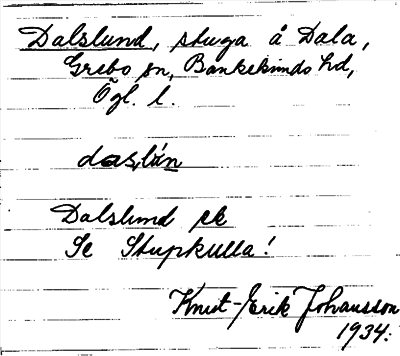 Dalslund, stuga å Dala,
Grebo sn, Bankekinds hd,
Ögl. l.
daslún
Dalslund ek
Se Stupkulla!
Knut-Erik Johansson
1934.